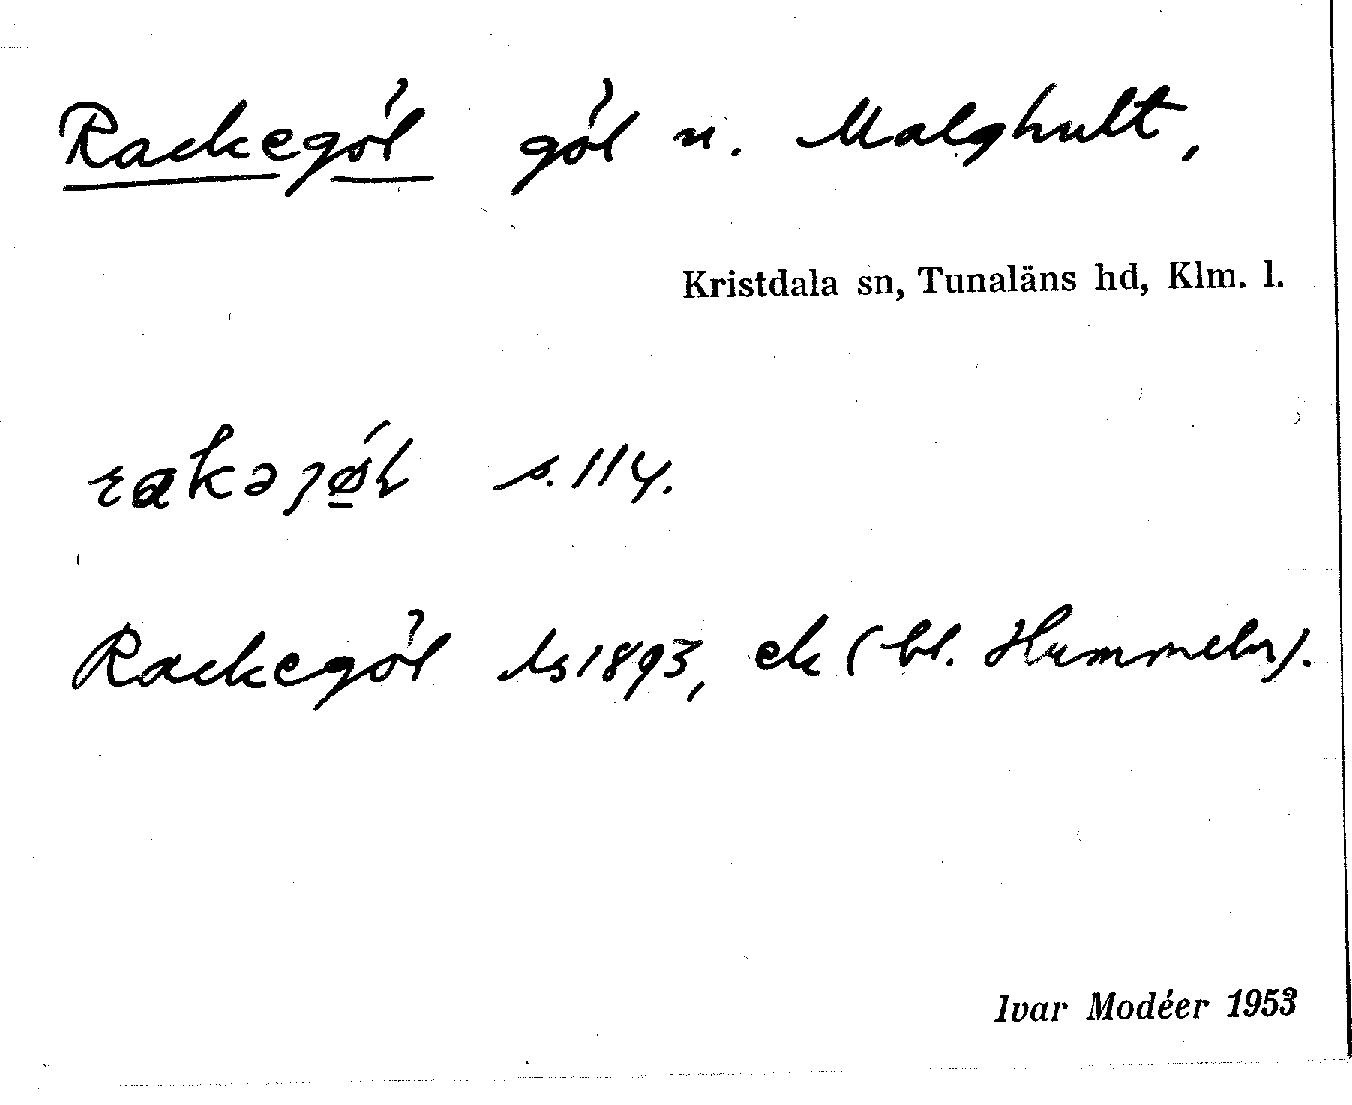 Rackegöl göl n. Malghult,
Kristdala sn, Tunaläns hd, Klm. l.
rakəjǿ̱l s. 114.
Rackegöl Ls 1893, ek (bl. Hummeln).
Ivar Modéer 1953